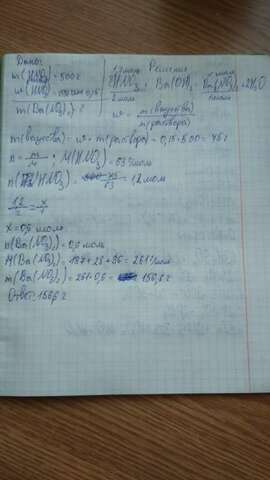 Дано: Решение
m(HNO3) = 500 г 1,2 моль x моль
2HNO3 + Ba(OH)2 = Ba(NO3)2 + 2H2O
2 моль 1 моль
m(Ba(NO3)2) - ?
w = m(вещества) / m(раствора)
m(вещества) = w · m(раствора) = 0,15 · 500 = 75 г
n = m/M ; M(HNO3) = 63 г/моль
n(HNO3) = 1,2 моль
1,2/2 = x/1
x = 0,6 моль
n(Ba(NO3)2) = 0,6 моль
M(Ba(NO3)2) = 137 + 28 + 96 = 261 г/моль
m(Ba(NO3)2) = 261 · 0,6 = 156,6 г
Ответ: 156,6 г